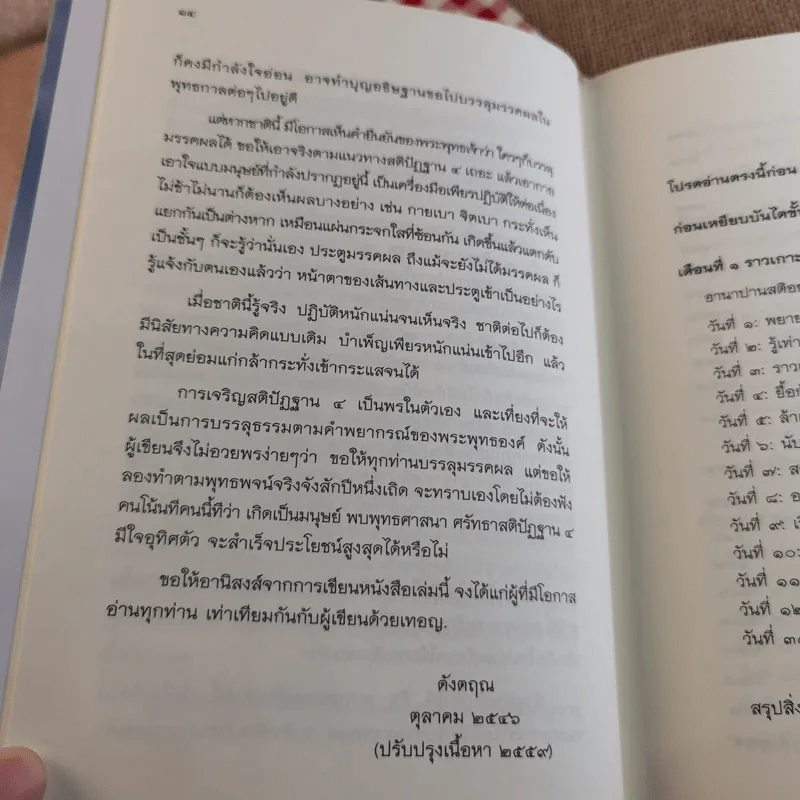 ๑๔
ก็คงมีกำลังใจอ่อน อาจทำบุญอธิษฐานขอไปบรรลุมรรคผลใน
พุทธกาลต่อๆไปอยู่ดี
แต่หากชาตินี้ มีโอกาสเห็นคำยืนยันของพระพุทธเจ้าว่า ใครๆก็บรรลุ
มรรคผลได้ ขอให้เอาจริงตามแนวทางสติปัฏฐาน ๔ เถอะ แล้วเอากาย
เอาใจแบบมนุษย์ที่กำลังปรากฏอยู่นี้ เป็นเครื่องมือเพียรปฏิบัติให้ต่อเนื่อง
ไม่ช้าไม่นานก็ต้องเห็นผลบางอย่าง เช่น กายเบา จิตเบา กระทั่งเห็น
แยกกันเป็นต่างหาก เหมือนแผ่นกระจกใสที่ซ้อนกัน เกิดขึ้นแล้วแตกดับ
เป็นชั้นๆ ก็จะรู้ว่านั่นเอง ประตูมรรคผล ถึงแม้จะยังไม่ได้มรรคผล ก็
รู้แจ้งกับตนเองแล้วว่า หน้าตาของเส้นทางและประตูเข้าเป็นอย่างไร
เมื่อชาตินี้รู้จริง ปฏิบัติหนักแน่นจนเห็นจริง ชาติต่อไปก็ต้อง
มีนิสัยทางความคิดแบบเดิม บำเพ็ญเพียรหนักแน่นเข้าไปอีก แล้ว
ในที่สุดย่อมแก่กล้ากระทั่งเข้ากระแสจนได้
การเจริญสติปัฏฐาน ๔ เป็นพรในตัวเอง และเที่ยงที่จะให้
ผลเป็นการบรรลุธรรมตามคำพยากรณ์ของพระพุทธองค์ ดังนั้น
ผู้เขียนจึงไม่อวยพรง่ายๆว่า ขอให้ทุกท่านบรรลุมรรคผล แต่ขอให้
ลองทำตามพุทธพจน์จริงจังสักปีหนึ่งเถิด จะทราบเองโดยไม่ต้องฟัง
คนโน้นทีคนนี้ทีว่า เกิดเป็นมนุษย์ พบพุทธศาสนา ศรัทธาสติปัฏฐาน ๔
มีใจอุทิศตัว จะสำเร็จประโยชน์สูงสุดได้หรือไม่
ขอให้อานิสงส์จากการเขียนหนังสือเล่มนี้ จงได้แก่ผู้ที่มีโอกาส
อ่านทุกท่าน เท่าเทียมกันกับผู้เขียนด้วยเทอญ.
ดังตฤณ
ตุลาคม ๒๕๔๖
(ปรับปรุงเนื้อหา ๒๕๕๙)
โปรดอ่านตรงนี้ก่อน
ก่อนเหยียบบันไดขั้
เดือนที่ ๑ ราวเกาะ
อานาปานสติอย
วันที่ ๑: พยาย
วันที่ ๒: รู้เท่า
วันที่ ๓: ราวเ
วันที่ ๔: ยื้อก
วันที่ ๕: ล้าเ
วันที่ ๖: นับ
วันที่ ๗: ส
วันที่ ๘: อ
วันที่ ๙: เ
วันที่ ๑๐:
วันที่ ๑๑
วันที่ ๑๒
วันที่ ๓๐
สรุปสิ่ง